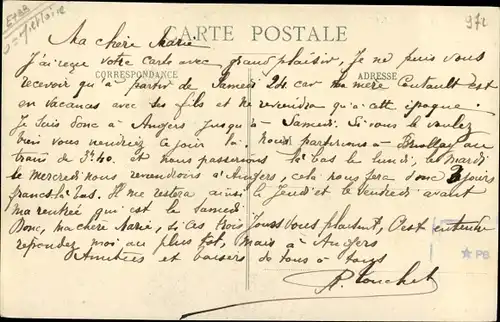 CARTE POSTALE
972
Ma chère Marie
J'ai reçue votre Carte avec grand plaisir, Je ne puis vous
CORRESPONDANCE
ADRESSE
recevoir qu'à partir de Samedi 24 car ma mère est
en vacances avec ses fils et ne reviendra qu'a cette époque.
Je suis donc à Angers Jusqu'à Samedi. Si vous le voulez
bien vous viendrez ce jour là. Nous partirions à Briollay au
train de 5h40. et nous passerions là bas le lundi, le Mardi
le Mercredi nous reviendrions à Angers, cela nous fera donc 3 jours
francs là bas. Il me restera ainsi le Jeudi et le Vendredi avant
Ma rentrée qui est le Samedi
Donc, ma chère Marie, si ces trois Jours vous plaisent, C'est entendu
repondez moi au plus tôt, mais à Angers
Amitiés et baisers de tous à tous
PB